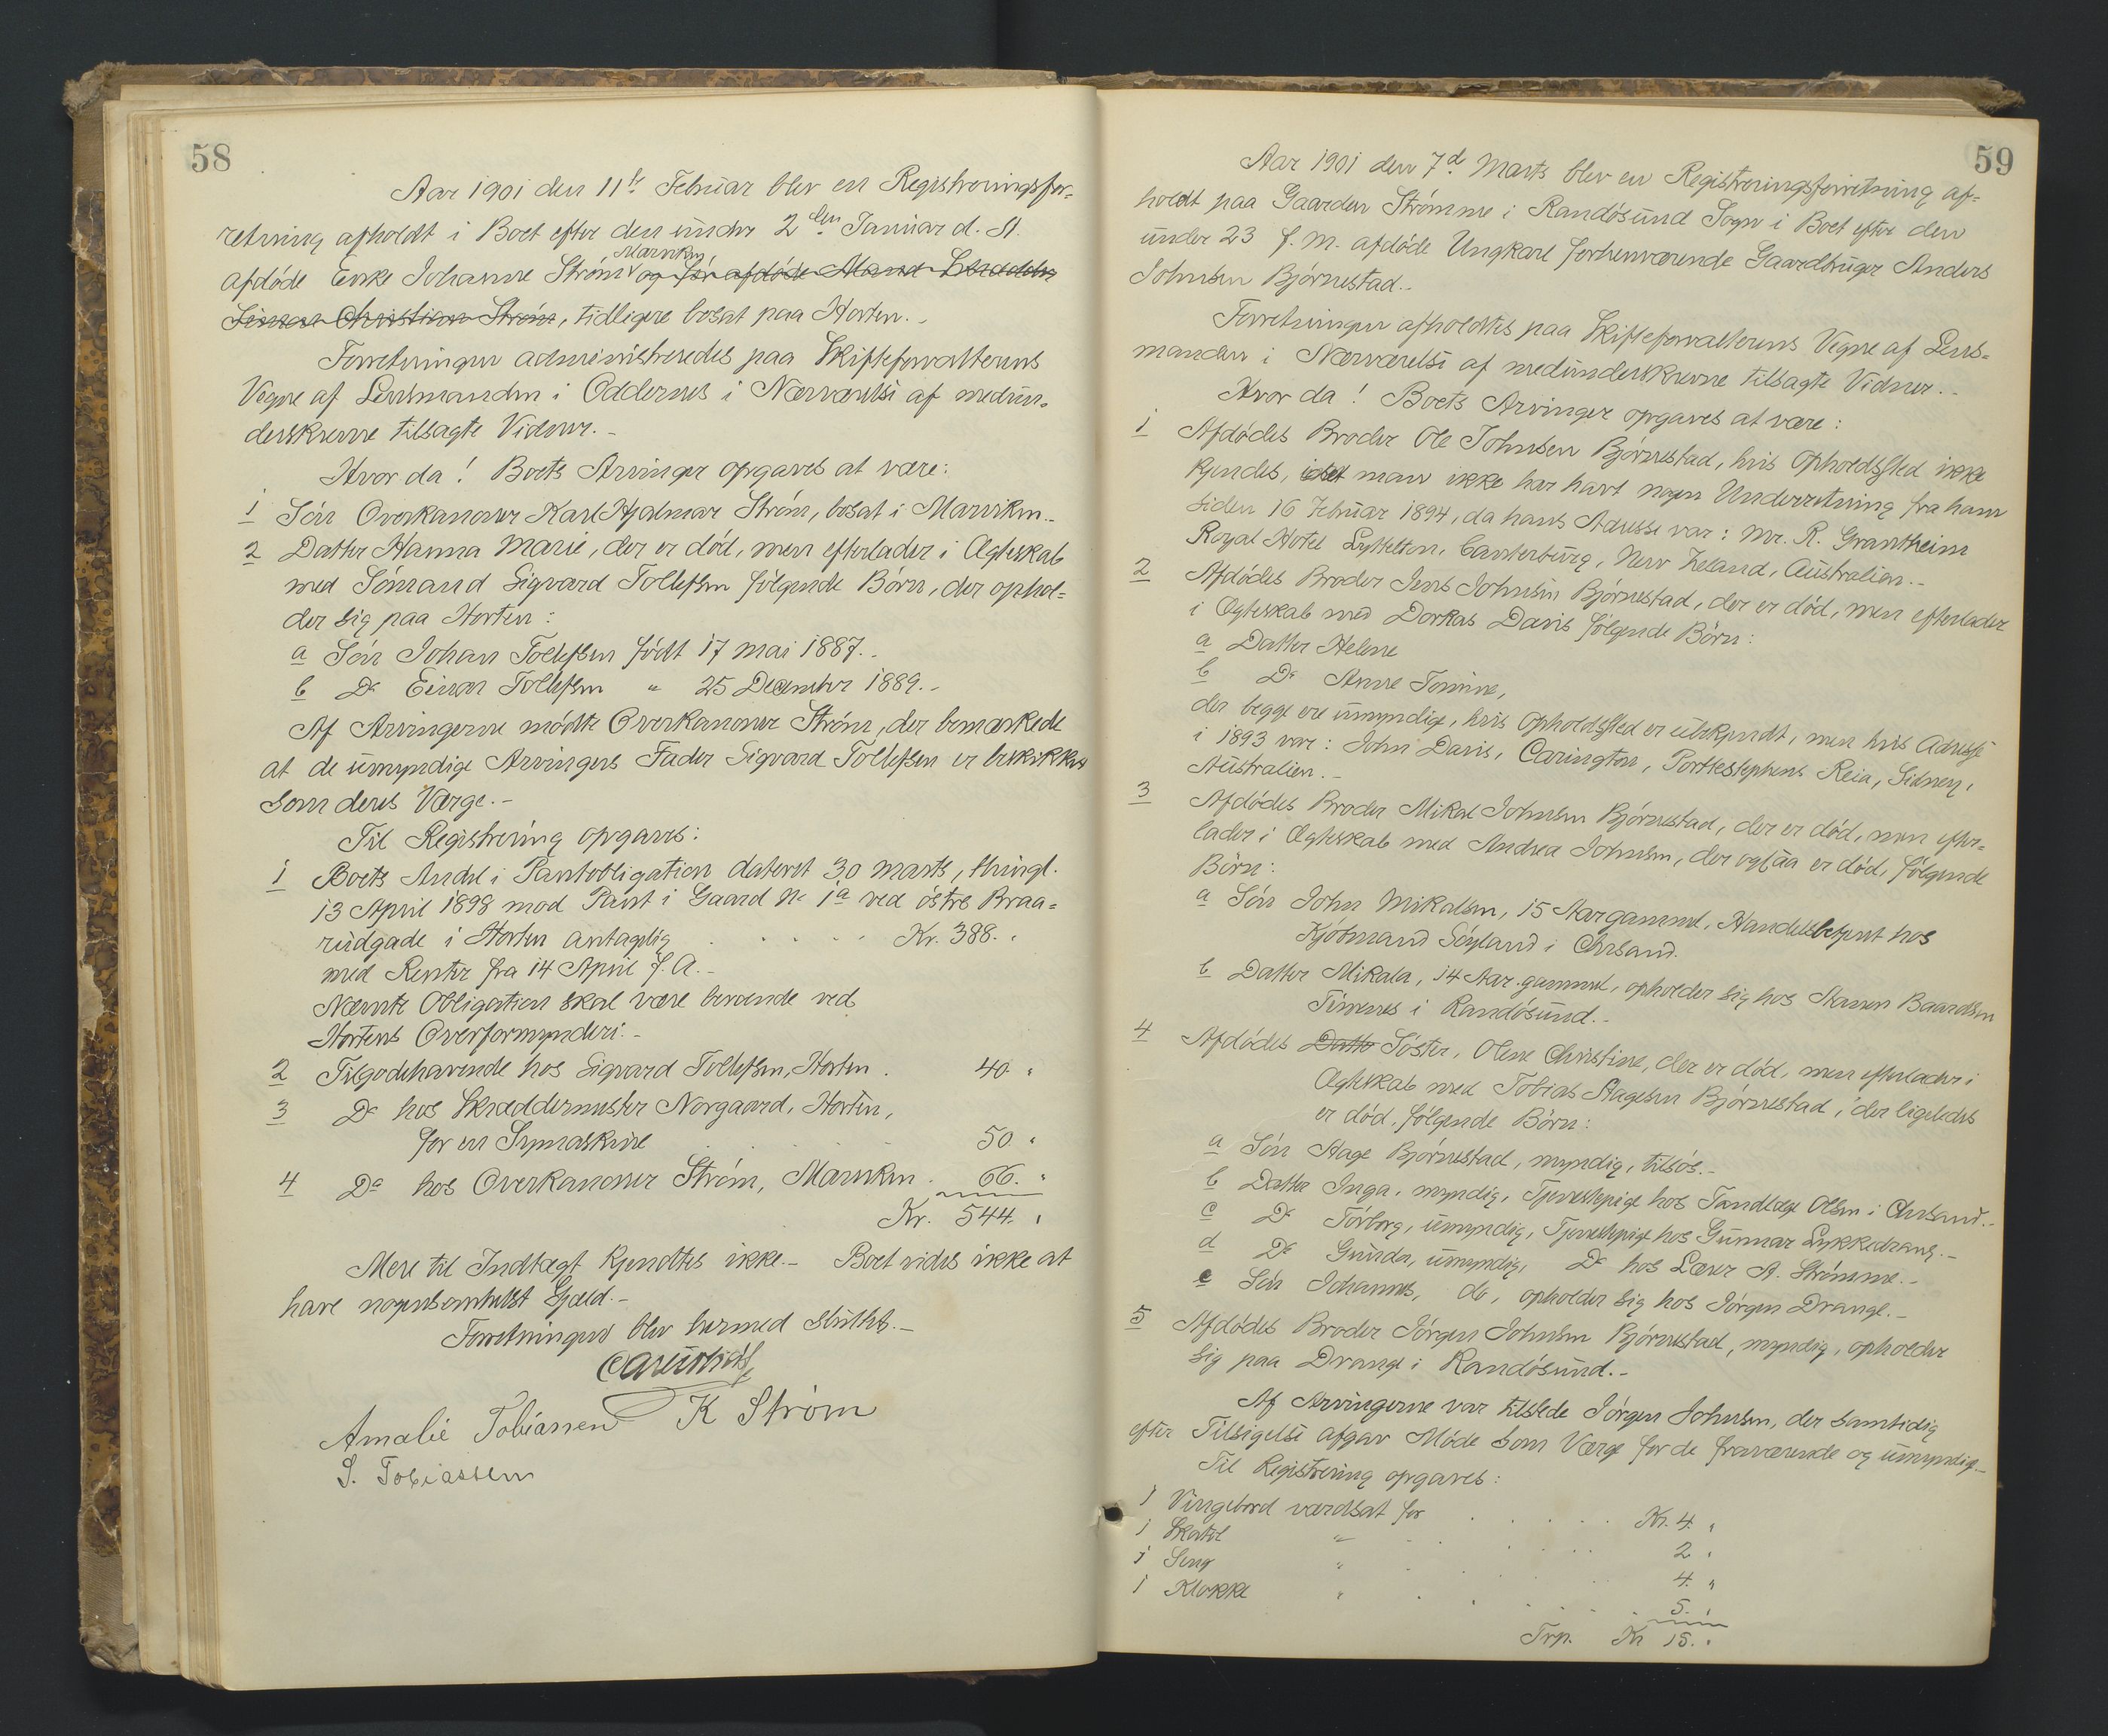 58
Aar 1901 den 11te Februar blev en Registreringsfor-
retning afholdt i Boet efter den under 2den Januar d. A.
Marviken
afdöde Enke Johanne Ström og för afdöde Mand
Christian Ström, tidligere bosat paa Horten.
Forretningen administreredes paa Skifteforvalterens
Vegne af Lensmanden i Oddernes i Nærværelse af medun-
derskrevne tilsagte Vidner.-
Hvor da! Boets Arvinger opgaves at være:
1 Sön Overkanoner Karl Hjalmar Ström, bosat i Marviken.-
2 Datter Hanna Marie, der er död, men efterlader i Ægteskab
med Sömand Sigvard Tollefsen fölgende Börn, der ophol-
der sig paa Horten:
a Sön Johan Tollefsen födt 17 mai 1887.-
b Do Einar Tollefsen " 25 December 1889.-
Af Arvingerne mödte Overkanoner Ström, der bemærkede
at de umyndige Arvingers Fader Sigvard Tollefsen er beskikket
som deres Værge.-
Til Registrering opgaves:
1 Boets Andel i Pantobligation dateret 30 marts, thingl.
13 April 1898 mod Pant i Gaard No 1a ved östre Braa-
rudgade i Horten antagelig . . . . Kr. 388. "
med Renter fra 14 April f. A.-
Nævnte Obligation skal være beroende ved
Hortens Overformynderi.-
2 Tilgodehavende hos Sigvard Tollefsen, Horten . 40 "
3 Do hos Skræddermester Norgaard, Horten,
for en Symaskine . . . . 50. "
4 Do hos Overkanoner Ström, Marviken . 66. "
Kr. 544. "
Mere til Indtægt kjendtes ikke.- Boet vides ikke at
have nogensomhelst Gjæld.-
Forretningen blev hermed sluttet.-
Amalie Tobiassen K Strøm
S. Tobiassen
59
Aar 1901 den 7d Marts blev en Registreringsforretning af-
holdt paa Gaarden Strömme i Randösund Sogn i Boet efter den
under 23 f. M. afdöde Ungkarl forhenværende Gaardbruger Anders
Johnsen Björnestad.-
Forretningen afholdtes paa Skifteforvalterens Vegne af Lens-
manden i Nærværelse af medunderskrevne tilsagte Vidner.-
Hvor da! Boets Arvinger opgaves at være:
1 Afdödes Broder Ole Johnsen Björnestad, hvis Opholdssted ikke
kjendes, idet man ikke har havt nogen Underretning fra ham
siden 16 Februar 1894, da hans Adresse var: Mr. R. Grantheim
Royal Hotel Lyttelton, Canterburg, New Zeland, Australien.-
2 Afdödes Broder Jens Johnsen Björnestad, der er död, men efterlader
i Ægteskab med Dorkas Davis fölgende Börn:
a Datter Helene
b Do Anne Tomine,
der begge ere umyndige, hvis Opholdssted er ubekjendt, men hvis Adresse
i 1893 var: John Davis, Carington, Portestephens Reia, Sidney,
Australien.-
3 Afdödes Broder Mikal Johnsen Björnestad, der er död, men efter-
lader i Ægteskab med Andrea Johnsen, der ogsaa er död, fölgende
Börn:
a Sön John Mikalsen, 15 Aar gammel, Handelsbetjent hos
Kjöbmand Söyland i Chrsand.
b Datter Mikala, 14 Aar gammel, opholder sig hos Aanen Baardsen
Timenes i Randösund.-
4 Afdödes Datte Söster, Olene Christine, der er död, men efterlader i
Ægteskab med Tobias Aagesen Björnestad, der ligeledes
er död, fölgende Börn:
a Sön Aage Björnestad, myndig, tilsös.-
b Datter Inga, myndig, Tjenestepige hos Tandlæge Olsen i Chrsand.-
c Do Torborg, umyndig, Tjenestepige hos Gunnar Lykkedrang.-
d Do Gunda, umyndig, Do hos Lærer A. Strömme.-
e Sön Johannes, do, opholder sig hos Jörgen Drange.-
5 Afdödes Broder Jörgen Johnsen Björnestad, myndig, opholder
sig paa Drange i Randösund.-
Af Arvingerne var tilstede Jörgen Johnsen, der samtidig
efter Tilsigelse afgav Möde som Værge for de fraværende og umyndige.-
Til Registrering opgaves:
1 Vingebord værdsat for . . . . . Kr. 4. "
1 Skatol " . . . . . 2 "
1 Seng " . . . . . 4. "
1 Klokke " . . . . . 5. "
Trp. Kr 15. "